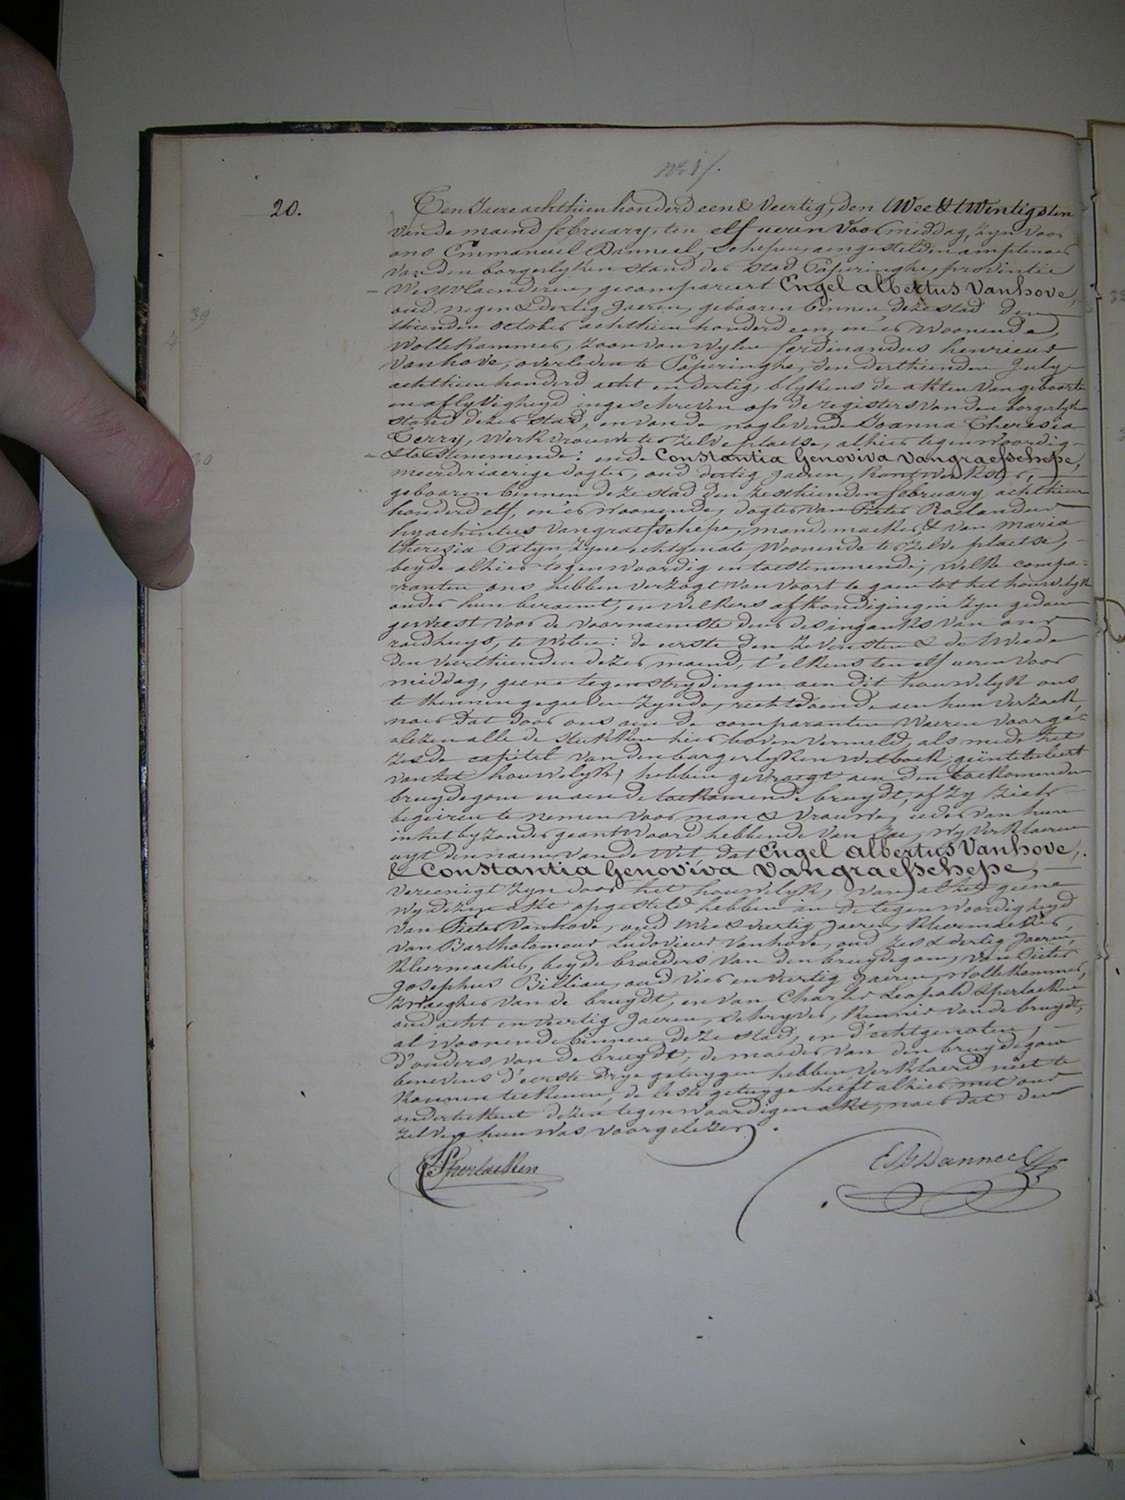 20.
Ten Jaere achthien honderd een & Veertig, den twee & twintigsten
van de maend february, ten elf ueren voor middag, zyn voor
ons Emmanuel Danneel, Schepen, aengestelden amptenaer
van den borgerlyken stand der Stad Poperinghe, provintie
Westvlaenderen, gecompareert Engel Albertus Vanhove,
oud negen & dertig Jaeren, gebooren binnen deze stad den
thienden october achthien honderd een, en er woonende,
wollekammer, zoon van wylen ferdinandus henricus
Vanhove, overleden te Poperinghe, den derthienden July
achthien honderd acht en dertig, blykens de akten van geboorte
en aflyvigheyd ingeschreven op de registers van den borgerlyken
stand dezer stad, en van de naglevende Joanna Theresia
Terry, werkvrouwe ter zelve plaetse, alhier tegenwoordig
toestemmende: ende Constantia Genoviva Vangraefschepe,
meerdriaerige dogter, oud dertig Jaeren, kantwerkster,
gebooren binnen deze stad den zesthienden february achthien
honderd elf, en er woonende, dogter van Pieter Roelandus
hyachintus Vangraefschepe, mandemaeker, & van Maria
theresia Patyn, zyne echtgenote, woonende ter zelve plaetse,
beyde alhier tegenwoordig en toestemmende; welke compa-
ranten ons hebben verzogt van voort te gaen tot het houwelyk
onder hun beraemt, en welkers afkondigingen zyn gedaen
geweest voor de voornaemste deur des ingangks van ons
raedhuys, te weten: de eerste den zevensten & de tweede
den veerthienden dezer maend, t'elkens ten elf ueren voor
middag, geene tegenstrydingen aen dit houwelyk ons
te kennen gegeven zynde, rechtdoende aen hun verzoek,
naer dat door ons aen de comparanten waeren voorge-
lezen alle de stukken hier boven vermeld, als mede het
zesde capitel van den borgerlyken Wetboek, geintituleert
van het houwelyk, hebben gevraegt aen den toekomenden
bruydegom en aen de toekomende bruydt, of zy zich
begeiren te nemen voor man & vrouwe, ieder van hun
in het byzonder geantwoord hebbende van Jae, wy verklaeren
uyt den naem van de Wet dat Engel Albertus Vanhove,
& Constantia Genoviva Vangraefschepe,
vereenigt zyn door het houwelyk, van al het geene
wy dezen akt opgesteld hebben in de tegenwoordigheyd
van Pieter Vanhove, oud twee & veertig Jaeren, kleermaeker,
van Bartholomeus Ludovicus Vanhove, oud zes & dertig Jaeren,
kleermaeker, beyde broeders van den bruydegom, van Pieter
Josephus Billiau, oud vier en veertig Jaeren, wollekammer,
zwaeger van de bruydt, en van Charles Leopold Sperlaeken
oud acht en veertig Jaeren, schryver, kennis van de bruydt,
al woonende binnen deze stad, en d'echtgenoten,
d'ouders van de bruydt, de moeder van den bruydegom
benevens d'eerste drye getuygen hebben verklaerd niet te
konnen teekenen, de leste getuyge heeft alhier met ons
onderteekent dezen tegenwoordigen akt, naer dat den
zelven hun was voorgelezen.
Sperlaeken
E Danneel